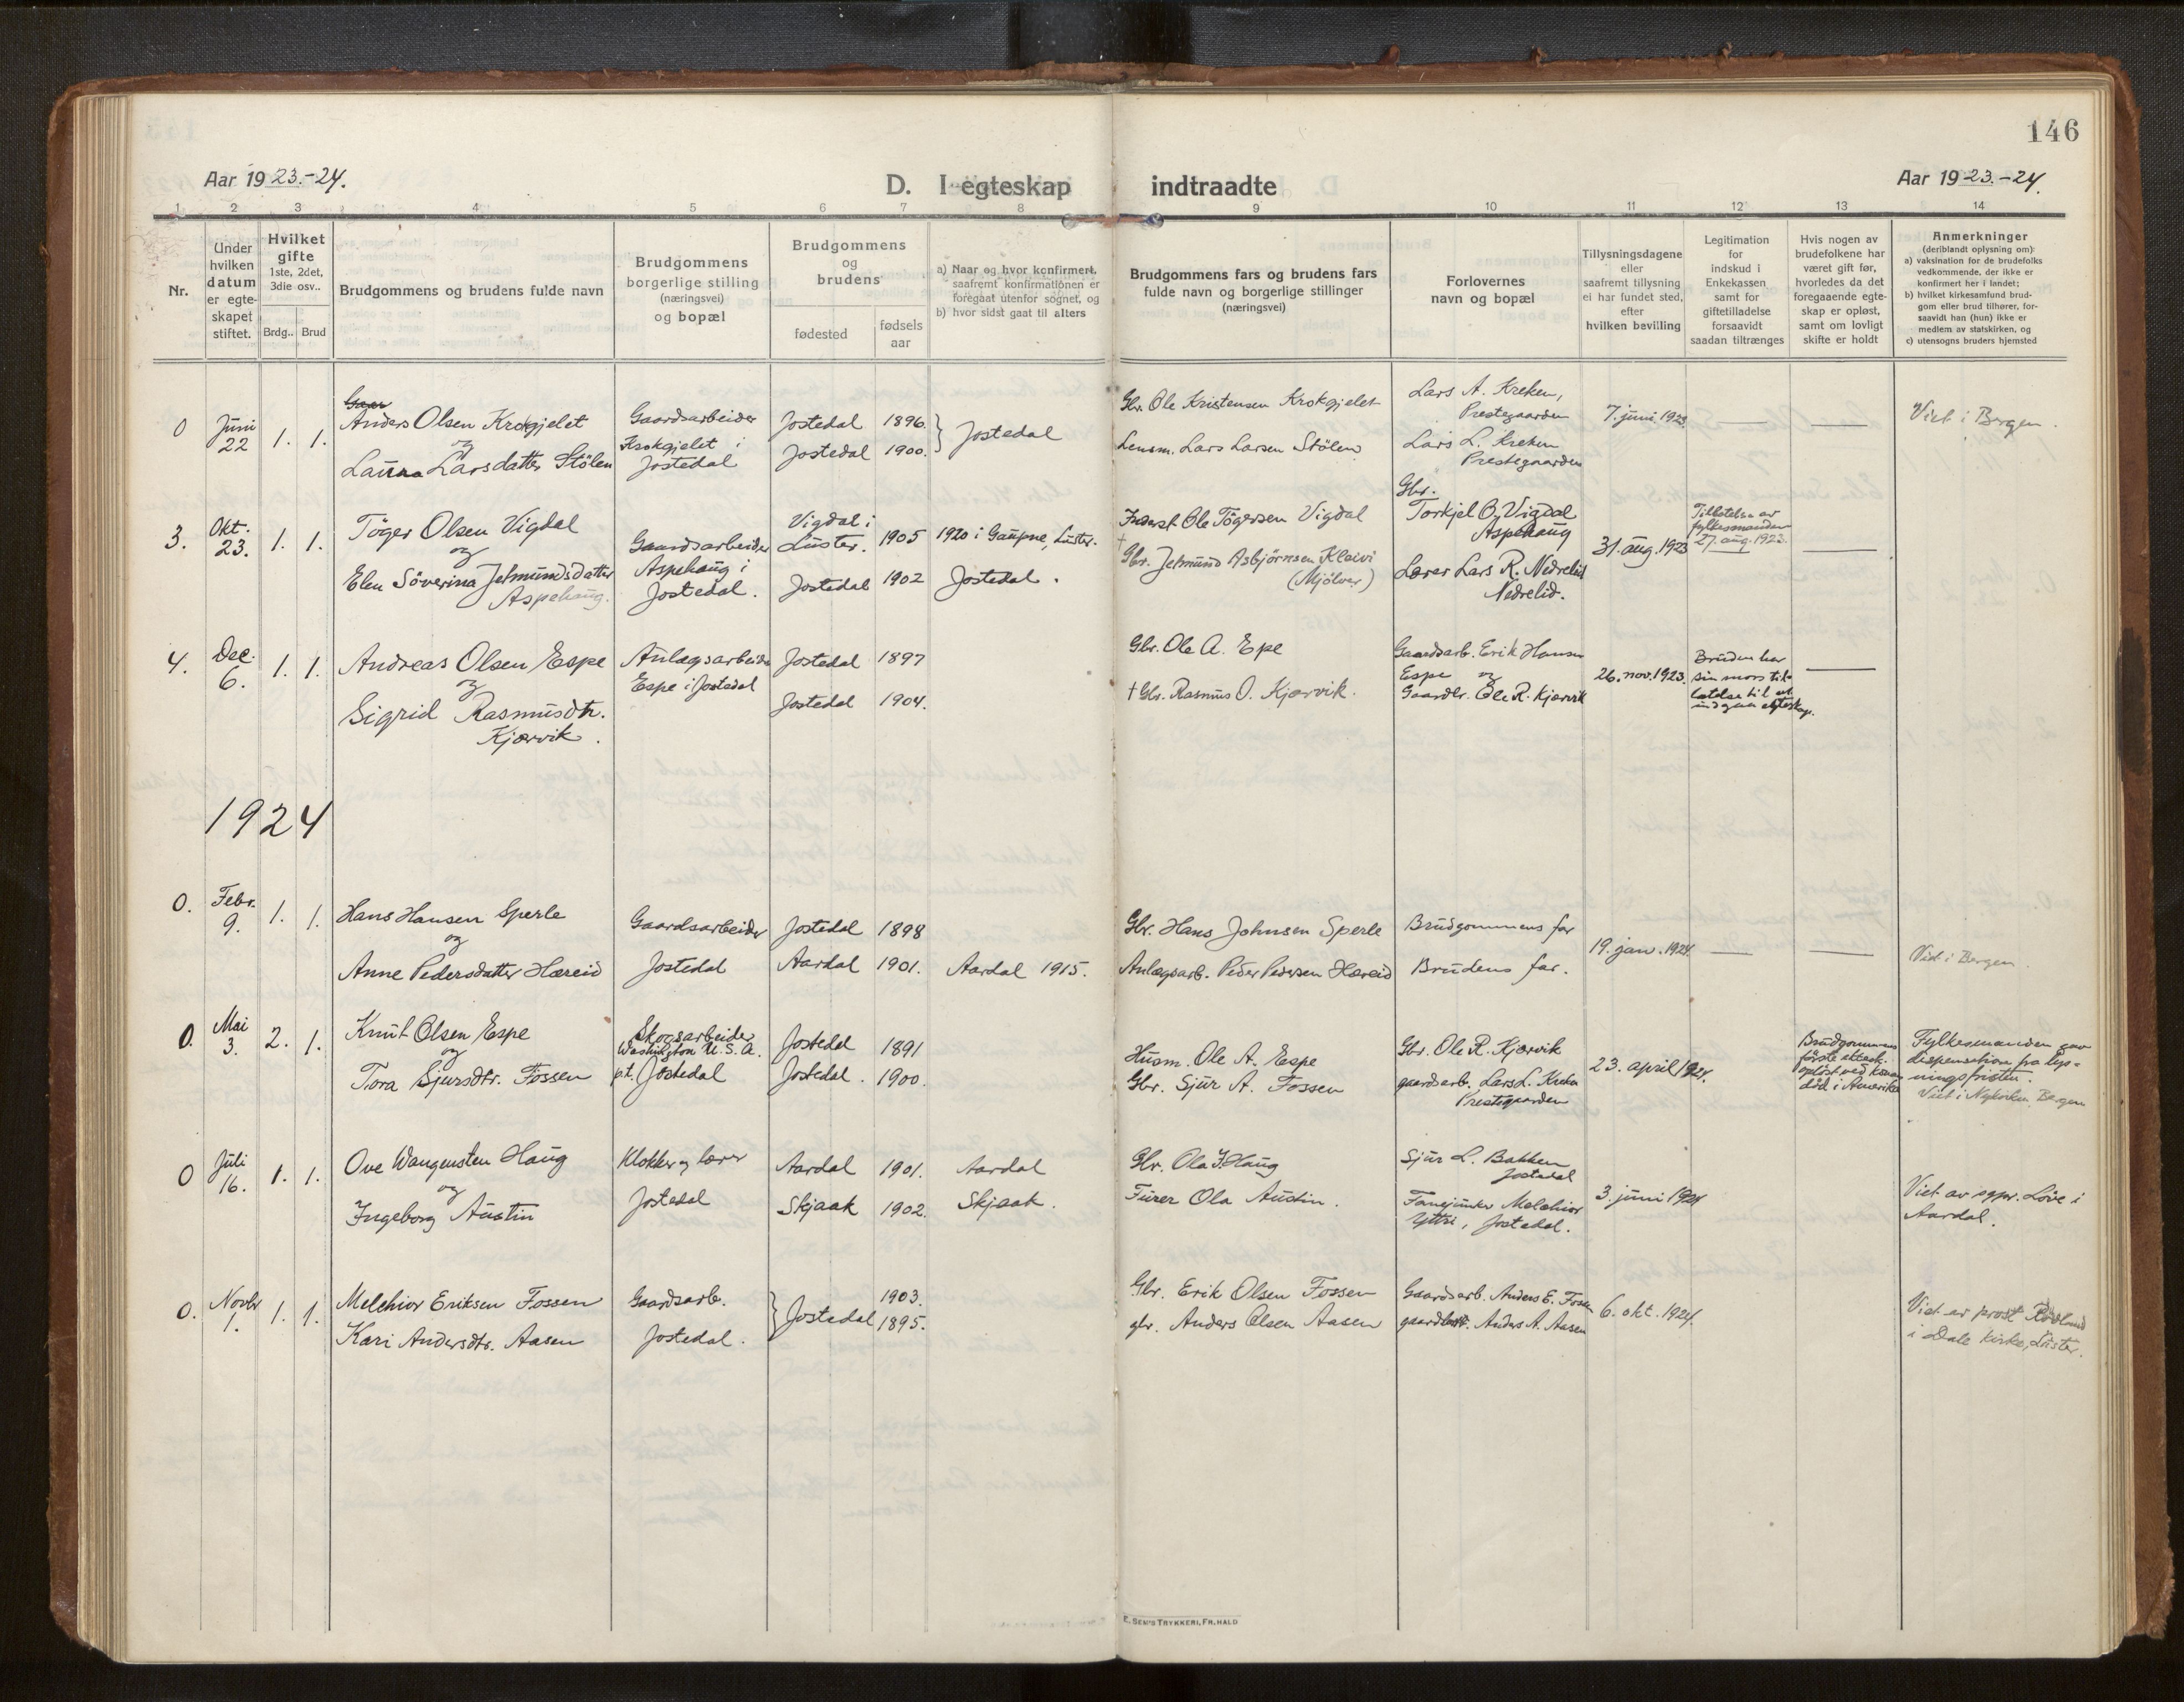 146
Aar 1923.-24.
D. I egteskap indtraadte
Aar 1923.-24.
1 2 3 4 5 6 7 8 9 10 11 12 13 14
Nr.
Under
hvilken
datum
er egte-
skapet
stiftet.
Hvilket
gifte
1ste, 2det,
3die osv..
Brdg.. Brud
Brudgommens og brudens fulde navn
Brudgommens
borgerlige stilling
(næringsvei)
og bopæl
Brudgommens
og
brudens
fødested
fødsels
aar
a) Naar og hvor konfirmert,
saafremt konfirmationen er
foregaat utenfor sognet, og
b) hvor sidst gaat til alters
Brudgommens fars og brudens fars
fulde navn og borgerlige stillinger
(næringsvei)
Forlovernes
navn og bopæl
Tillysningsdagene
eller
saafremt tillysning
ei har fundet sted,
efter
hvilken bevilling
Legitimation
for
indskud i
Enkekassen
samt for
giftetilladelse
forsaavidt
saadan tiltrænges
Hvis nogen av
brudefolkene har
været gift før,
hvorledes da det
foregaaende egte-
skap er opløst,
samt om lovligt
skifte er holdt
Anmerkninger
(deriblandt oplysning om):
a) vaksination for de brudefolks
vedkommende, der ikke er
konfirmert her i landet;
b) hvilket kirkesamfund brud-
gom eller brud tilhører, for-
saavidt han (hun) ikke er
medlem av statskirken, og
c) utensogns bruders hjemsted
0
Juni
22
1. 1.
Gaar
Anders Olsen Krokgjelet
og
Laura Larsdatter Stölen
Gaardsarbeider
Krokgjelet i
Jostedal
Jostedal 1896.
Jostedal 1900.
Jostedal
Gbr. Ole Kristensen Krokgjelet
Lensm. Lars Larsen Stölen
Lars A. Kreken,
Prestegaarden
Lars L. Kreken
Prestegaarden
7. juni 1923
Viet i Bergen.
3.
Okt.
23.
1. 1.
Töger Olsen Vigdal
og
Elen Söverina Jetmundsdatter
Aspehaug.
Gaardsarbeider
Aspehaug i
Jostedal.
Vigdal i
Luster. 1905
Jostedal 1902
1920 i Gaupne, Luster.
Jostedal.
Inderst Ole Tögersen Vigdal
†
Gbr. Jetmund Asbjørnsen Kleivi
(Mjölver)
Gbr.
Torkjel O. Vigdal
Aspehaug
Lærer Lars R. Nedrelid
Nedrelid.
31. aug. 1923
Tillatelse av
fylkesmanden
27. aug. 1923.
4.
Dec.
6.
1. 1.
Andreas Olsen Espe
og
Sigrid Rasmusdtr.
Kjærvik.
Anlægsarbeider
Espe i Jostedal
Jostedal 1897
Jostedal 1904.
Gbr. Ole A. Espe
† Gbr. Rasmus O. Kjærvik.
Gaardsarb. Erik Hansen
Espe og
Gaardbr. Ole R. Kjærvik
26. nov. 1923.
Bruden har
sin mors til-
latelse til at
indgaa egteskap.
1924
0.
Febr.
9.
1. 1.
Hans Hansen Sperle
og
Anne Pedersdatter Hæreid
Gaardsarbeider
Jostedal
Jostedal 1898
Aardal 1901.
Aardal 1915.
Gbr. Hans Johnsen Sperle
Anlægsarb. Peder Pedersen Hæreid
Brudgommens far
Brudens far.
19. jan. 1924.
Viet i Bergen.
0.
Mai
3.
2. 1.
Knut Olsen Espe
og
Tora Sjursdtr. Fossen
Skogsarbeider
Washington U.S.A.
p.t. Jostedal
Jostedal 1891
Jostedal. 1900.
Husm. Ole A. Espe
Gbr. Sjur A. Fossen
Gbr. Ole R. Kjærvik
gaardsarb. Lars L. Kreken
Prestegaarden
23. april 1924.
Brudgommens
første ektesk.
opløst ved konens
død i Amerika
Fylkesmanden gav
dispensation fra lys-
ningsfristen.
Viet i Nykirken, Bergen
0
Juli
16.
1. 1.
Ove Wangensten Haug
og
Ingeborg Austin
Klokker og lærer
Jostedal
Aardal 1901.
Skjaak 1902.
Aardal
Skjaak.
Gbr. Ola J. Haug
Furer Ola Austin.
Sjur L. Bakken
Jostedal
Fanejunker Melchior
Yttri, Jostedal.
3. juni 1924
Viet av sgpr. Löve i
Aardal.
0.
Novbr
1.
1. 1.
Melchior Eriksen Fossen
Kari Andersdtr. Aasen
Gaardsarb.
Jostedal.
Jostedal
1903.
1895.
Gbr. Erik Olsen Fossen
gbr. Anders Olsen Aasen
Gaardsarb. Anders E. Fossen
Anders A. Aasen
6. okt. 1924.
Viet av prost
i Dale kirke, Luster.
E. SEM'S TRYKKERI, FR.HALD